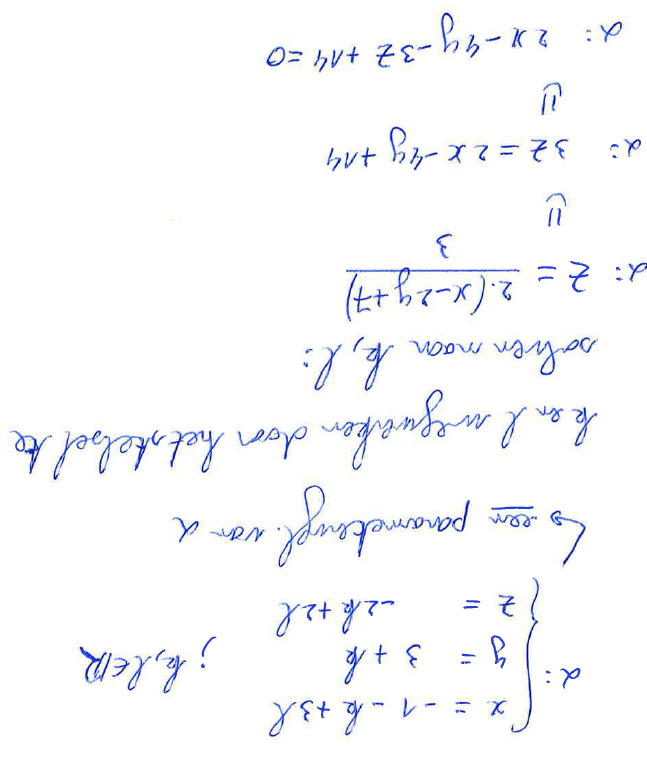 x = -1 - k + 3l
α: y = 3 + k ; k, l ∈ ℝ
z = -2k + 2l
↳ een parametervgl. van α
k en l wegwerken door het stelsel te
solven naar k, l:
α: z = 2·(x-2y+7) / 3
⇕
α: 3z = 2x - 4y + 14
⇕
α: 2x - 4y - 3z + 14 = 0